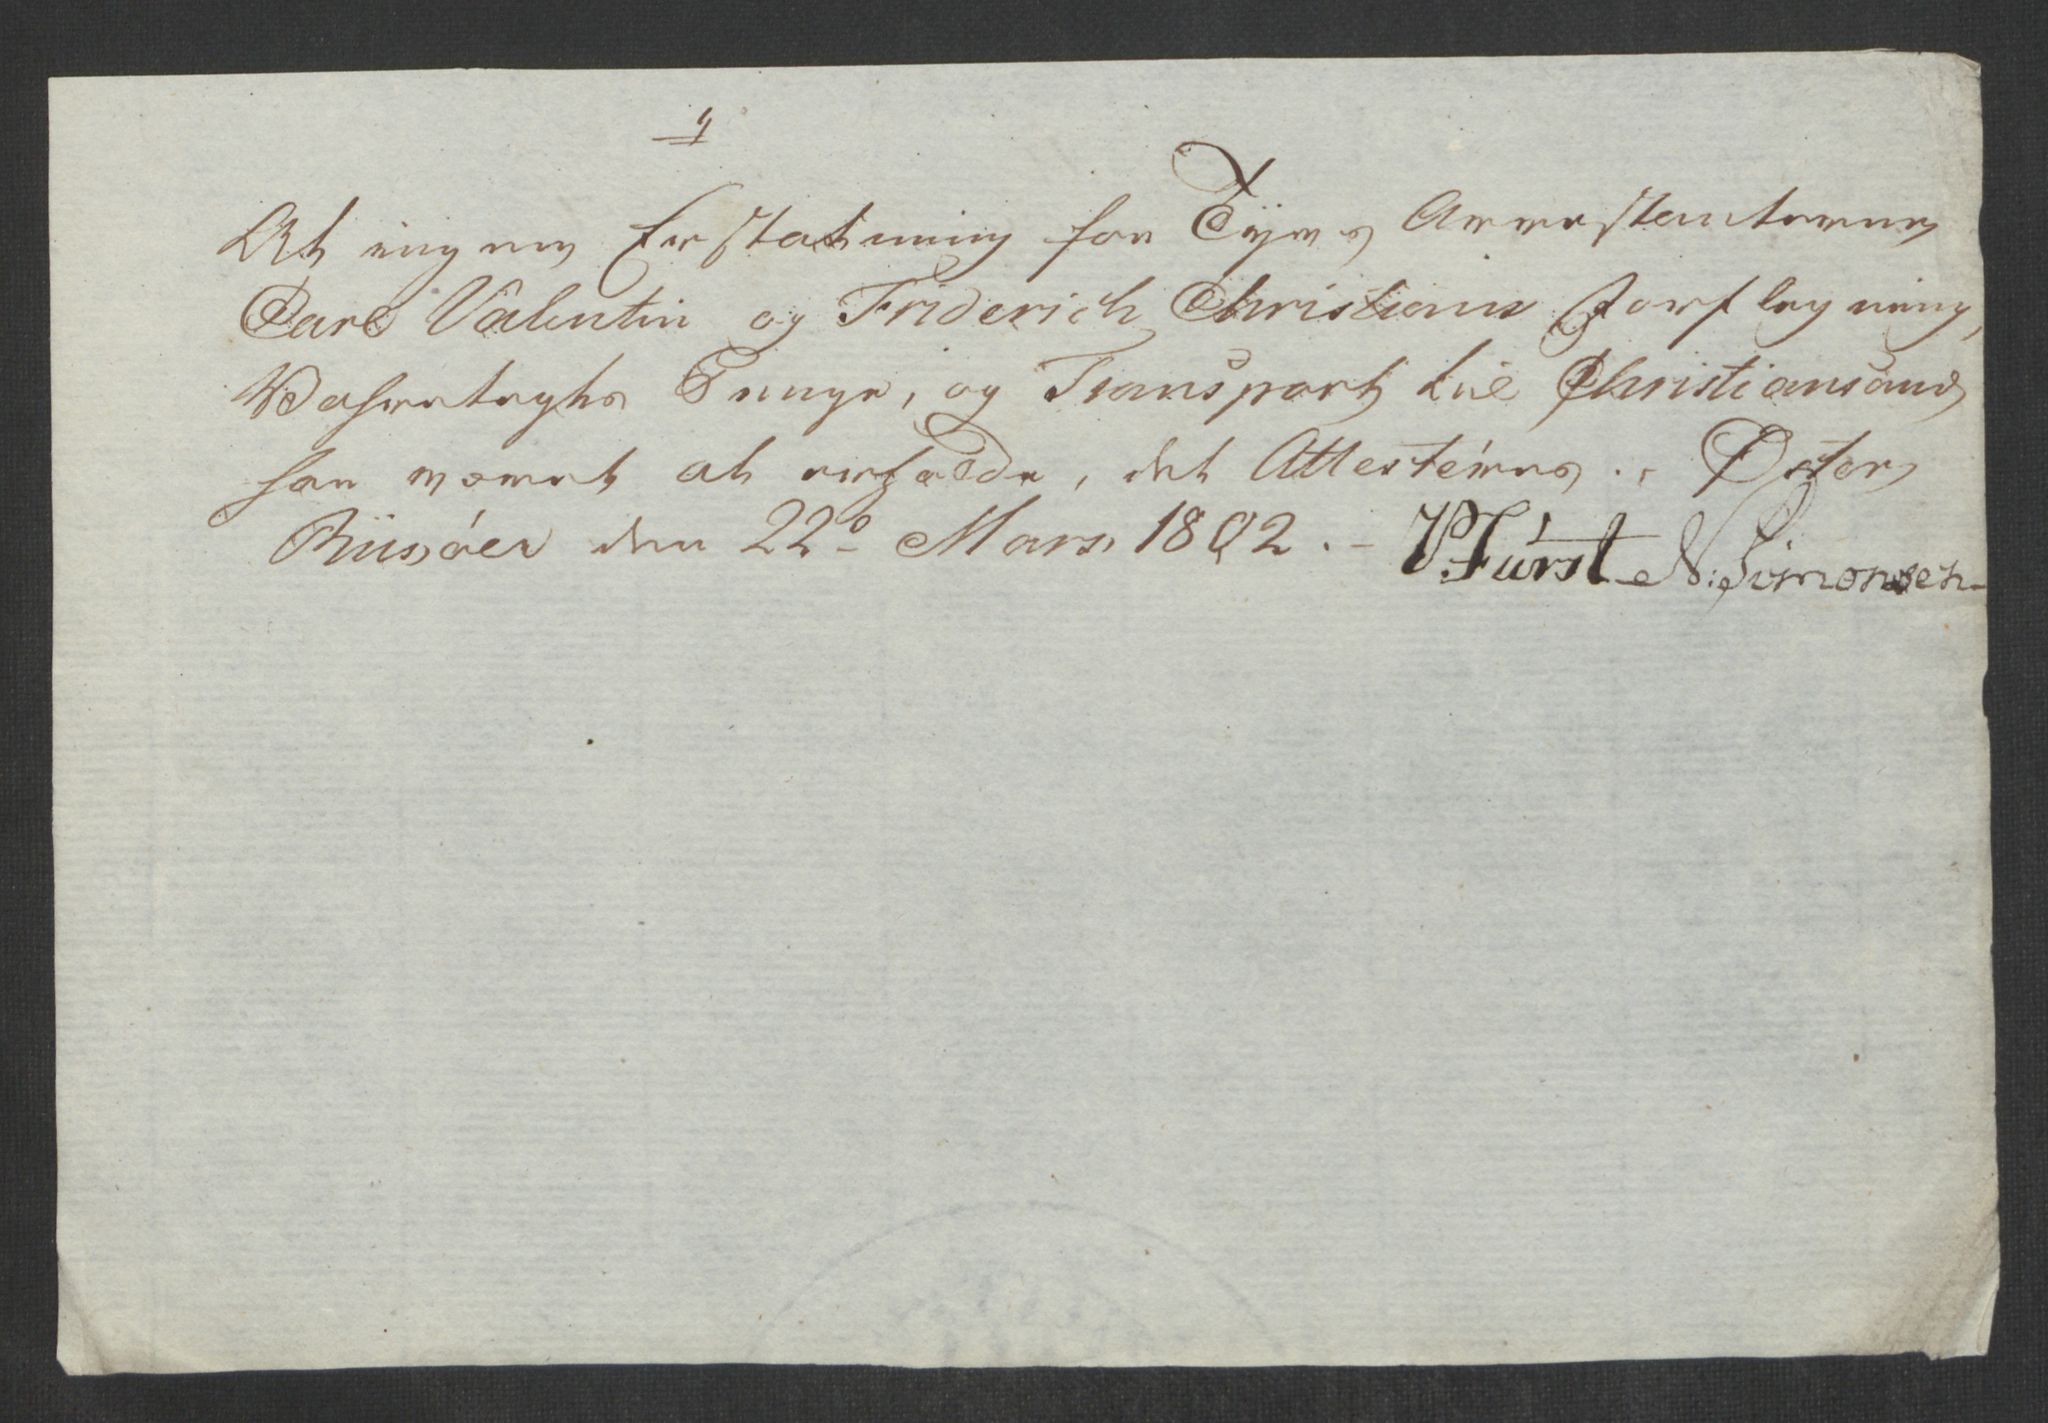 4
At ingen Erstatning for Tyve Arrestanterne
Carl Valentin og Friderich Christians Forflegning,
Vahretegts Penge, og Transport til Christiansand
har været at erholde, det Attesteres. Øster
Riisöer den 22de Mars 1802. -
Fürst N: Simonsen